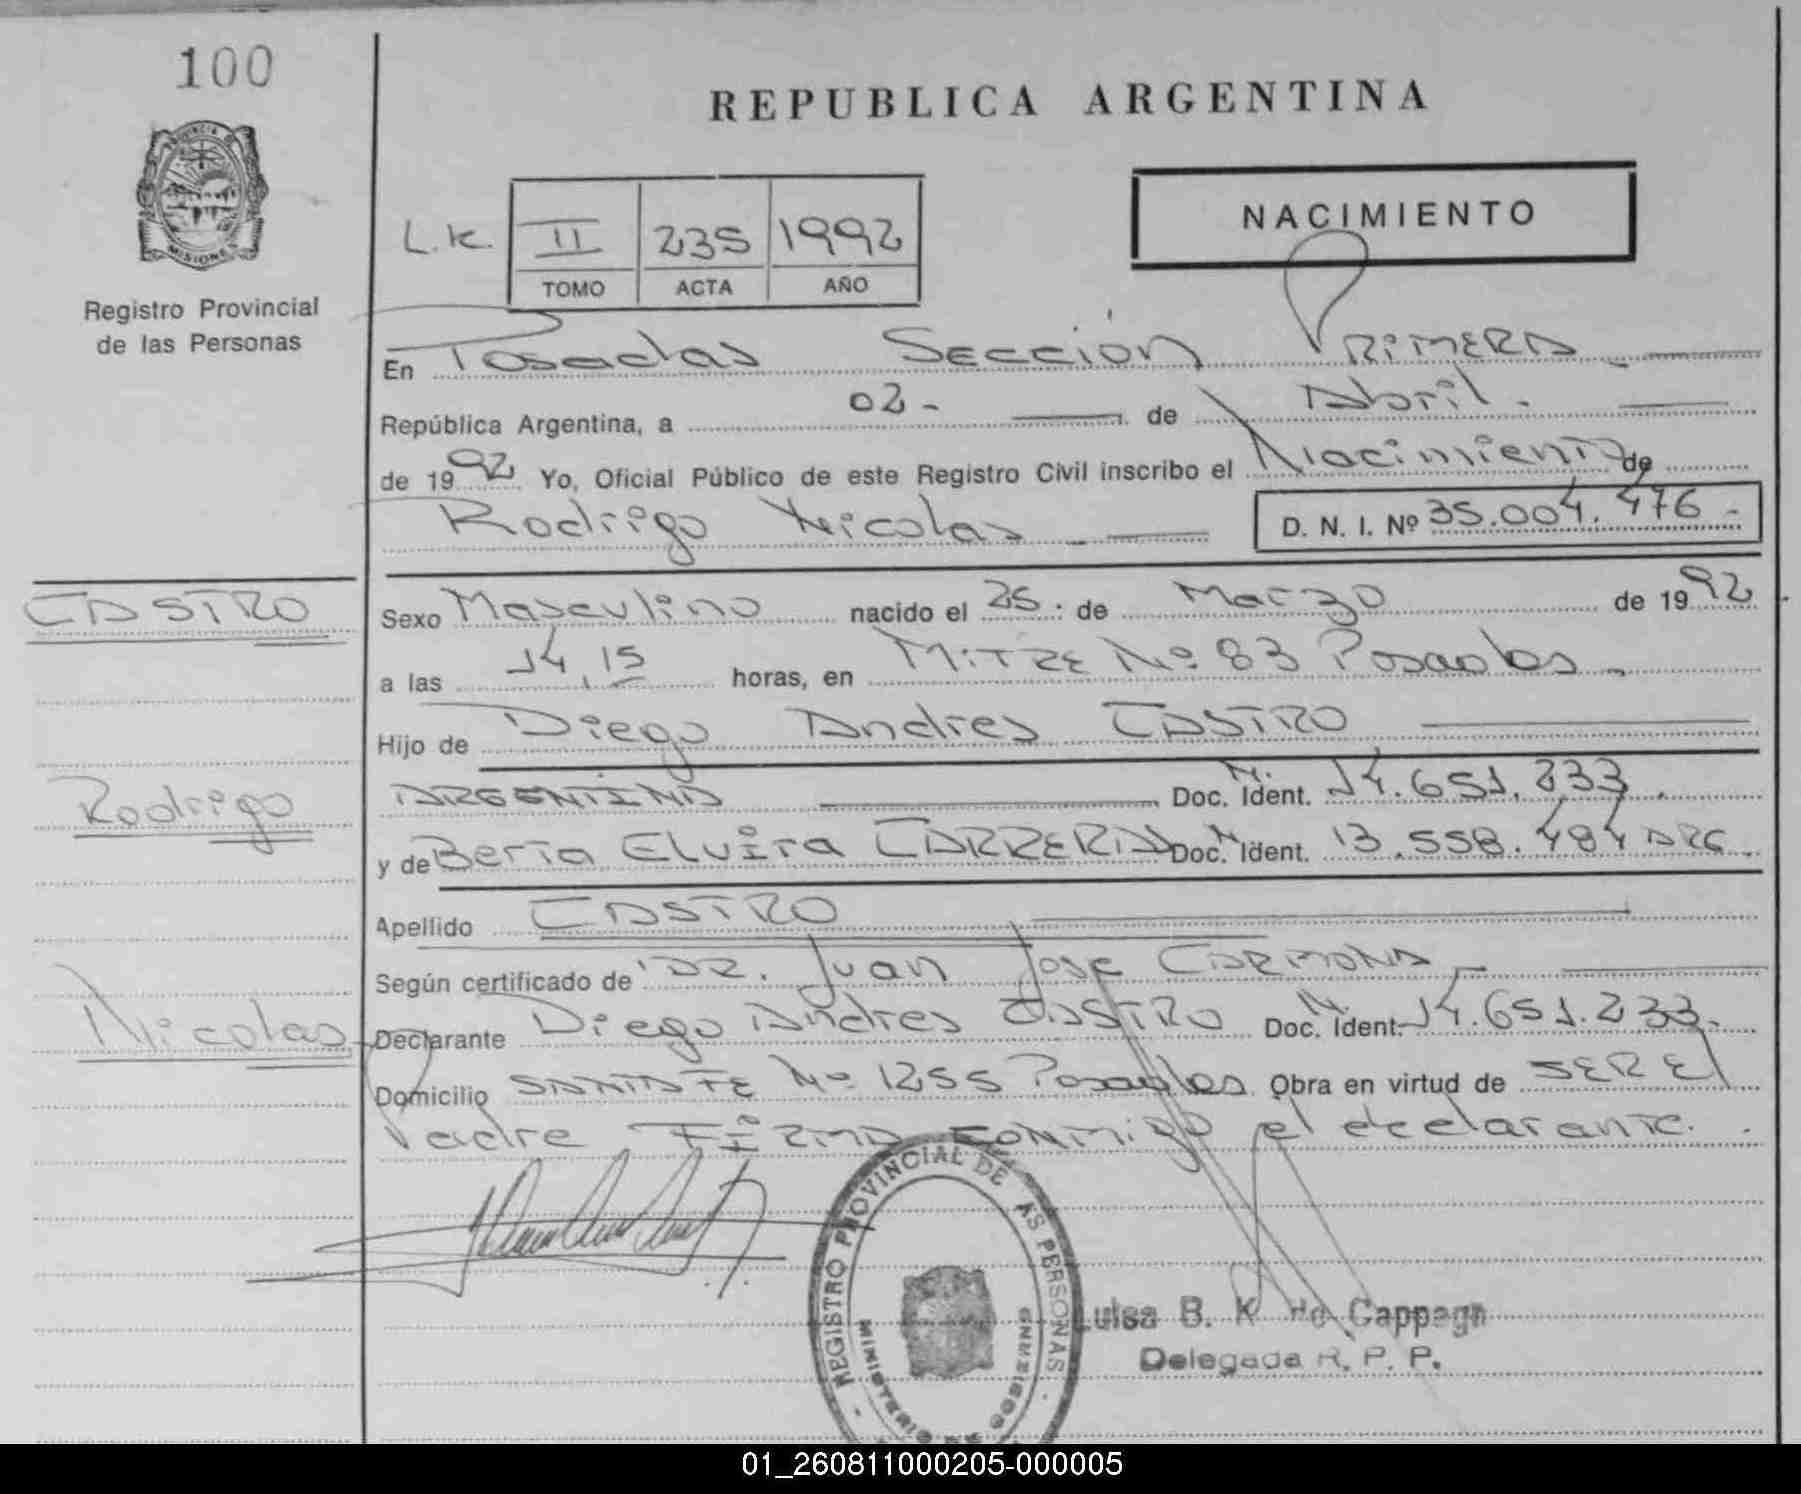 100
REPUBLICA ARGENTINA
NACIMIENTO
L.K. II 235 1992
TOMO ACTA AÑO
PROVINCIA DE
MISIONES
Registro Provincial
de las Personas
En Posadas Sección PRIMERA
República Argentina, a 02 - de Abril.
de 1992 Yo, Oficial Público de este Registro Civil inscribo el Nacimiento de
Rodrigo Nicolas D. N. I. Nº 35.004.476 -
CASTRO
Sexo Masculino nacido el 25. de Marzo de 1992
a las 14,15 horas, en MiTRE Nº 83 Posadas
Hijo de Diego Andres CASTRO
ARGENTINA Doc. Ident. M. 14.651.233.
Rodrigo
y de Berta Elvira CARRERA Doc. Ident. 13.558.484 ARG.
Apellido CASTRO
Según certificado de DR. Juan Jose CARMONA
Nicolas
Declarante Diego Andres CASTRO Doc. Ident. M. 14.651.233.
Domicilio SANTA FE Nº 1255 Posadas Obra en virtud de SER El
Padre FiRMA CONMigo el declarante.
REGISTRO PROVINCIAL DE AS PERSONAS
MINISTERIO DE GOB
Luisa B. K de Cappagn
Delegada R. P. P.
01_260811000205-000005